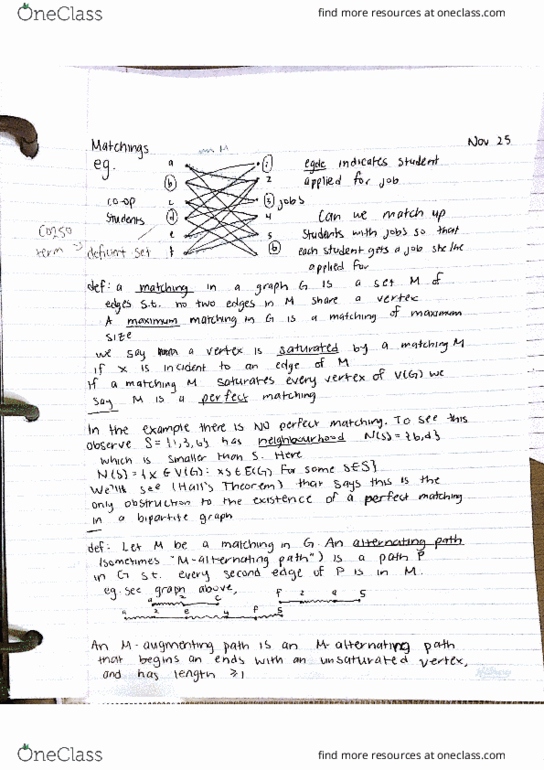 OneClass
find more resources at oneclass.com
Nov 25
Matchings
in M
eg.
a
b
c
d
e
f
1
2
3 jobs
4
5
6
co-op
students
egde indicates student
applied for job
Can we match up
students with jobs so that
each student gets a job she/he
applied for
CO250
term → deficient set
def: a matching in a graph G is a set M of
edges s.t. no two edges in M share a vertex
A maximum matching in G is a matching of maximum
size
we say a vertex is saturated by a matching M
if x is incident to an edge of M
If a matching M saturates every vertex of V(G) we
say M is a perfect matching
In the example there is NO perfect matching. To see this
observe S = {1,3,6} has neighbourhood N(S) = {b,d}
which is smaller than S. Here
N(S) = {x ∈ V(G): xs ∈ E(G) for some s∈S}
We'll see (Hall's Theorem) that says this is the
only obstruction to the existence of a perfect matching
in a bipartite graph
def: Let M be a matching in G. An alternating path
(sometimes "M-alternating path") is a path P
in G s.t. every second edge of P is in M.
eg. see graph above,
a 2 c
f 2 a 5
a 2 e 4 f 5
An M-augmenting path is an M-alternating path
that begins an ends with an unsaturated vertex,
and has length ≥1
OneClass
find more resources at oneclass.com